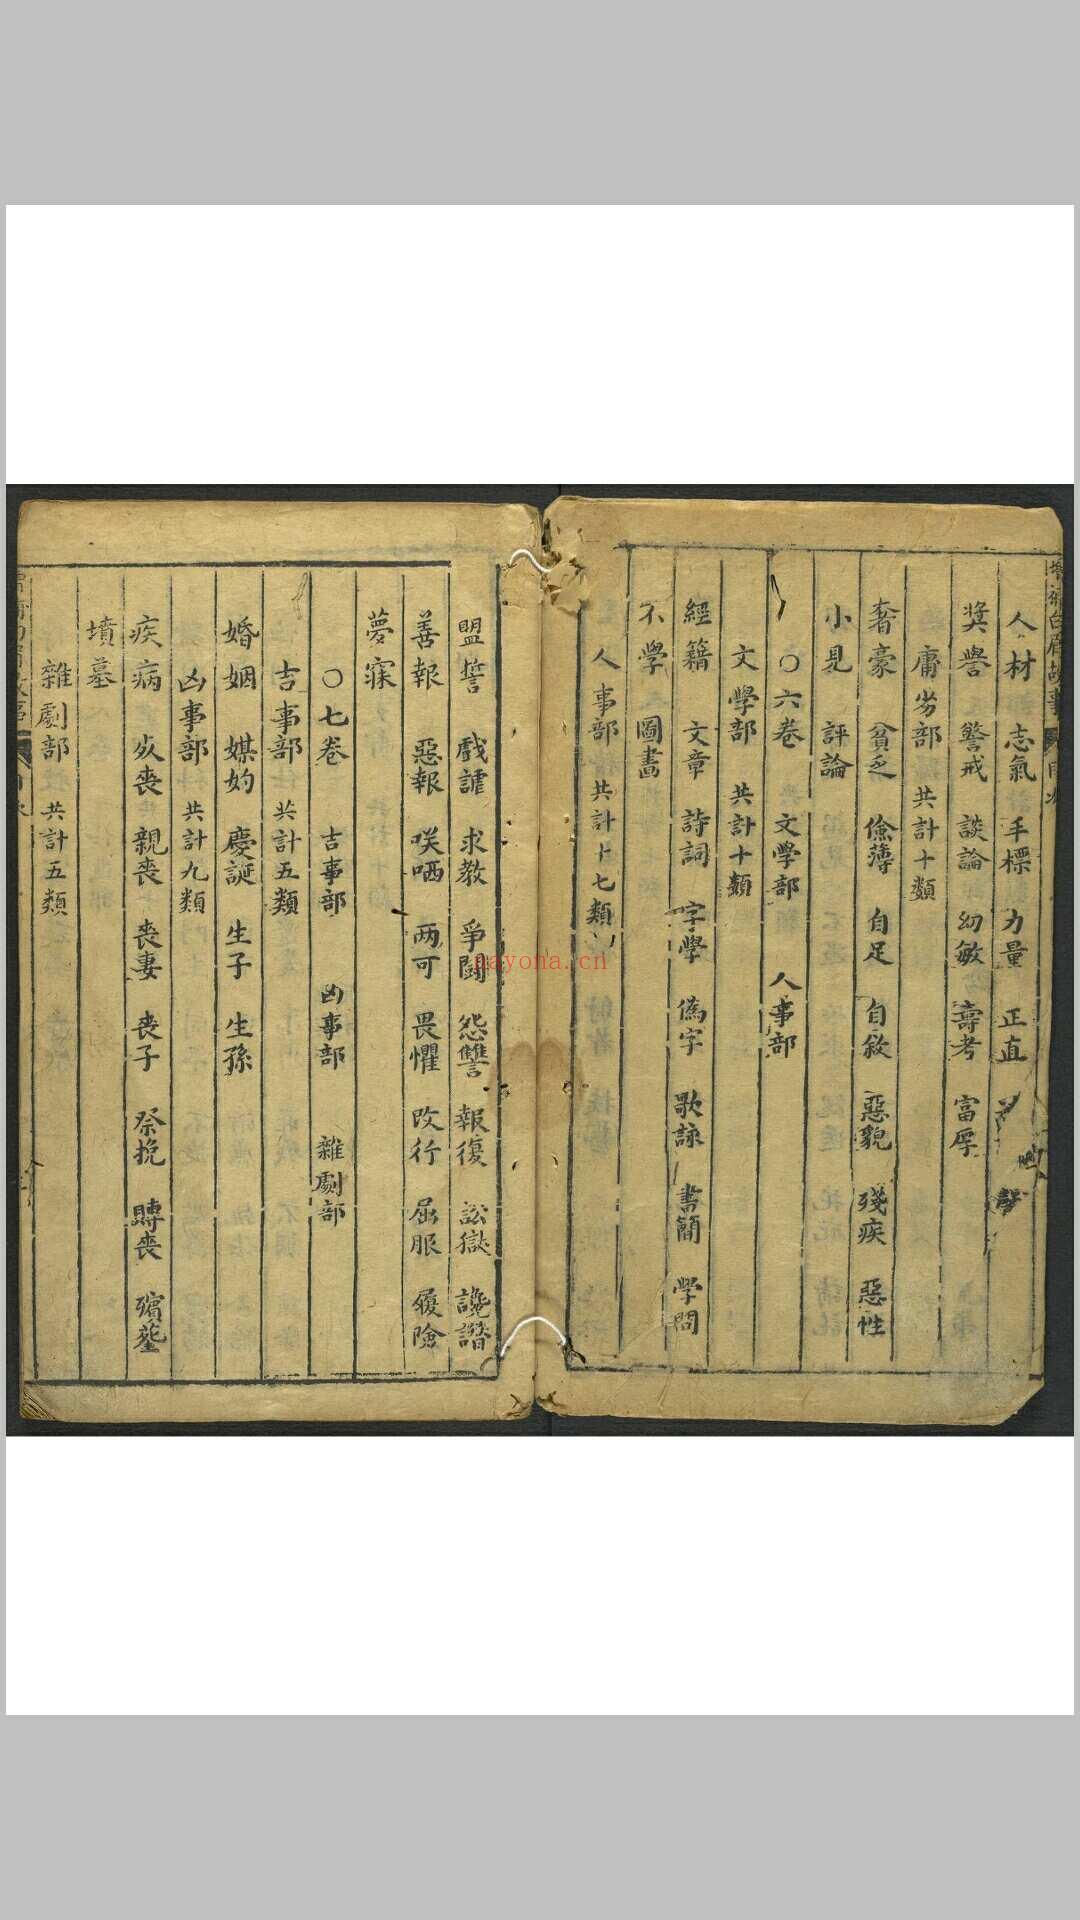 增補白眉故事 目次
人材 志氣 手標 力量 正直
獎譽 警戒 談論 幼敏 壽考 富厚
庸劣部 共計十類
奢豪 貧乏 儉薄 自足 自敘 惡貌 殘疾 惡性
小見 評論
○六卷 文學部 人事部
文學部 共計十類
經籍 文章 詩詞 字學 偽字 歌詠 書簡 學問
不學 圖畫
人事部 共計十七類
盟誓 戲謔 求教 爭鬪 怨讐 報復 訟獄 讒譖
善報 惡報 咲哂 両可 畏懼 改行 屈服 履險
夢寐
○七卷 吉事部 凶事部 雜劇部
吉事部 共計五類
婚姻 媒妁 慶誕 生子 生孫
凶事部 共計九類
疾病 喪 親喪 喪妻 喪子 祭挽 賻喪 殯塟
墳墓
雜劇部 共計五類
nayona.cn